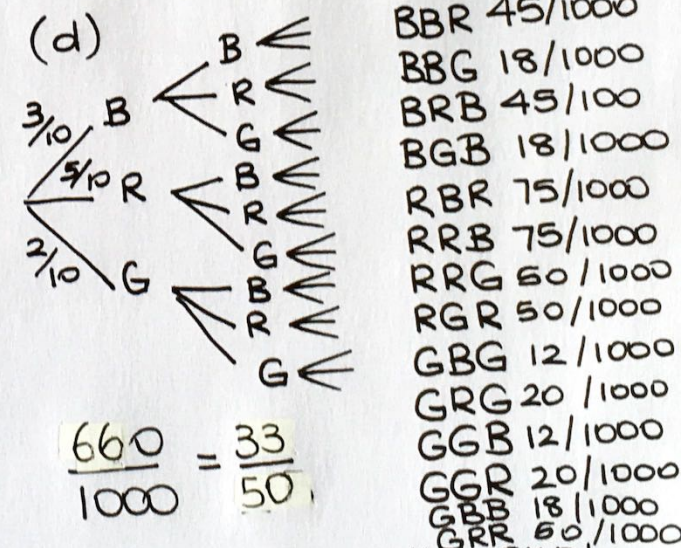 (d)
3/10 B
5/10 R
2/10 G
B
R
G
B
R
G
B
R
G
660/1000 = 33/50
BBR 45/1000
BBG 18/1000
BRB 45/100
BGB 18/1000
RBR 75/1000
RRB 75/1000
RRG 50/1000
RGR 50/1000
GBG 12/1000
GRG 20/1000
GGB 12/1000
GGR 20/1000
GBB 18/1000
GRR 50/1000